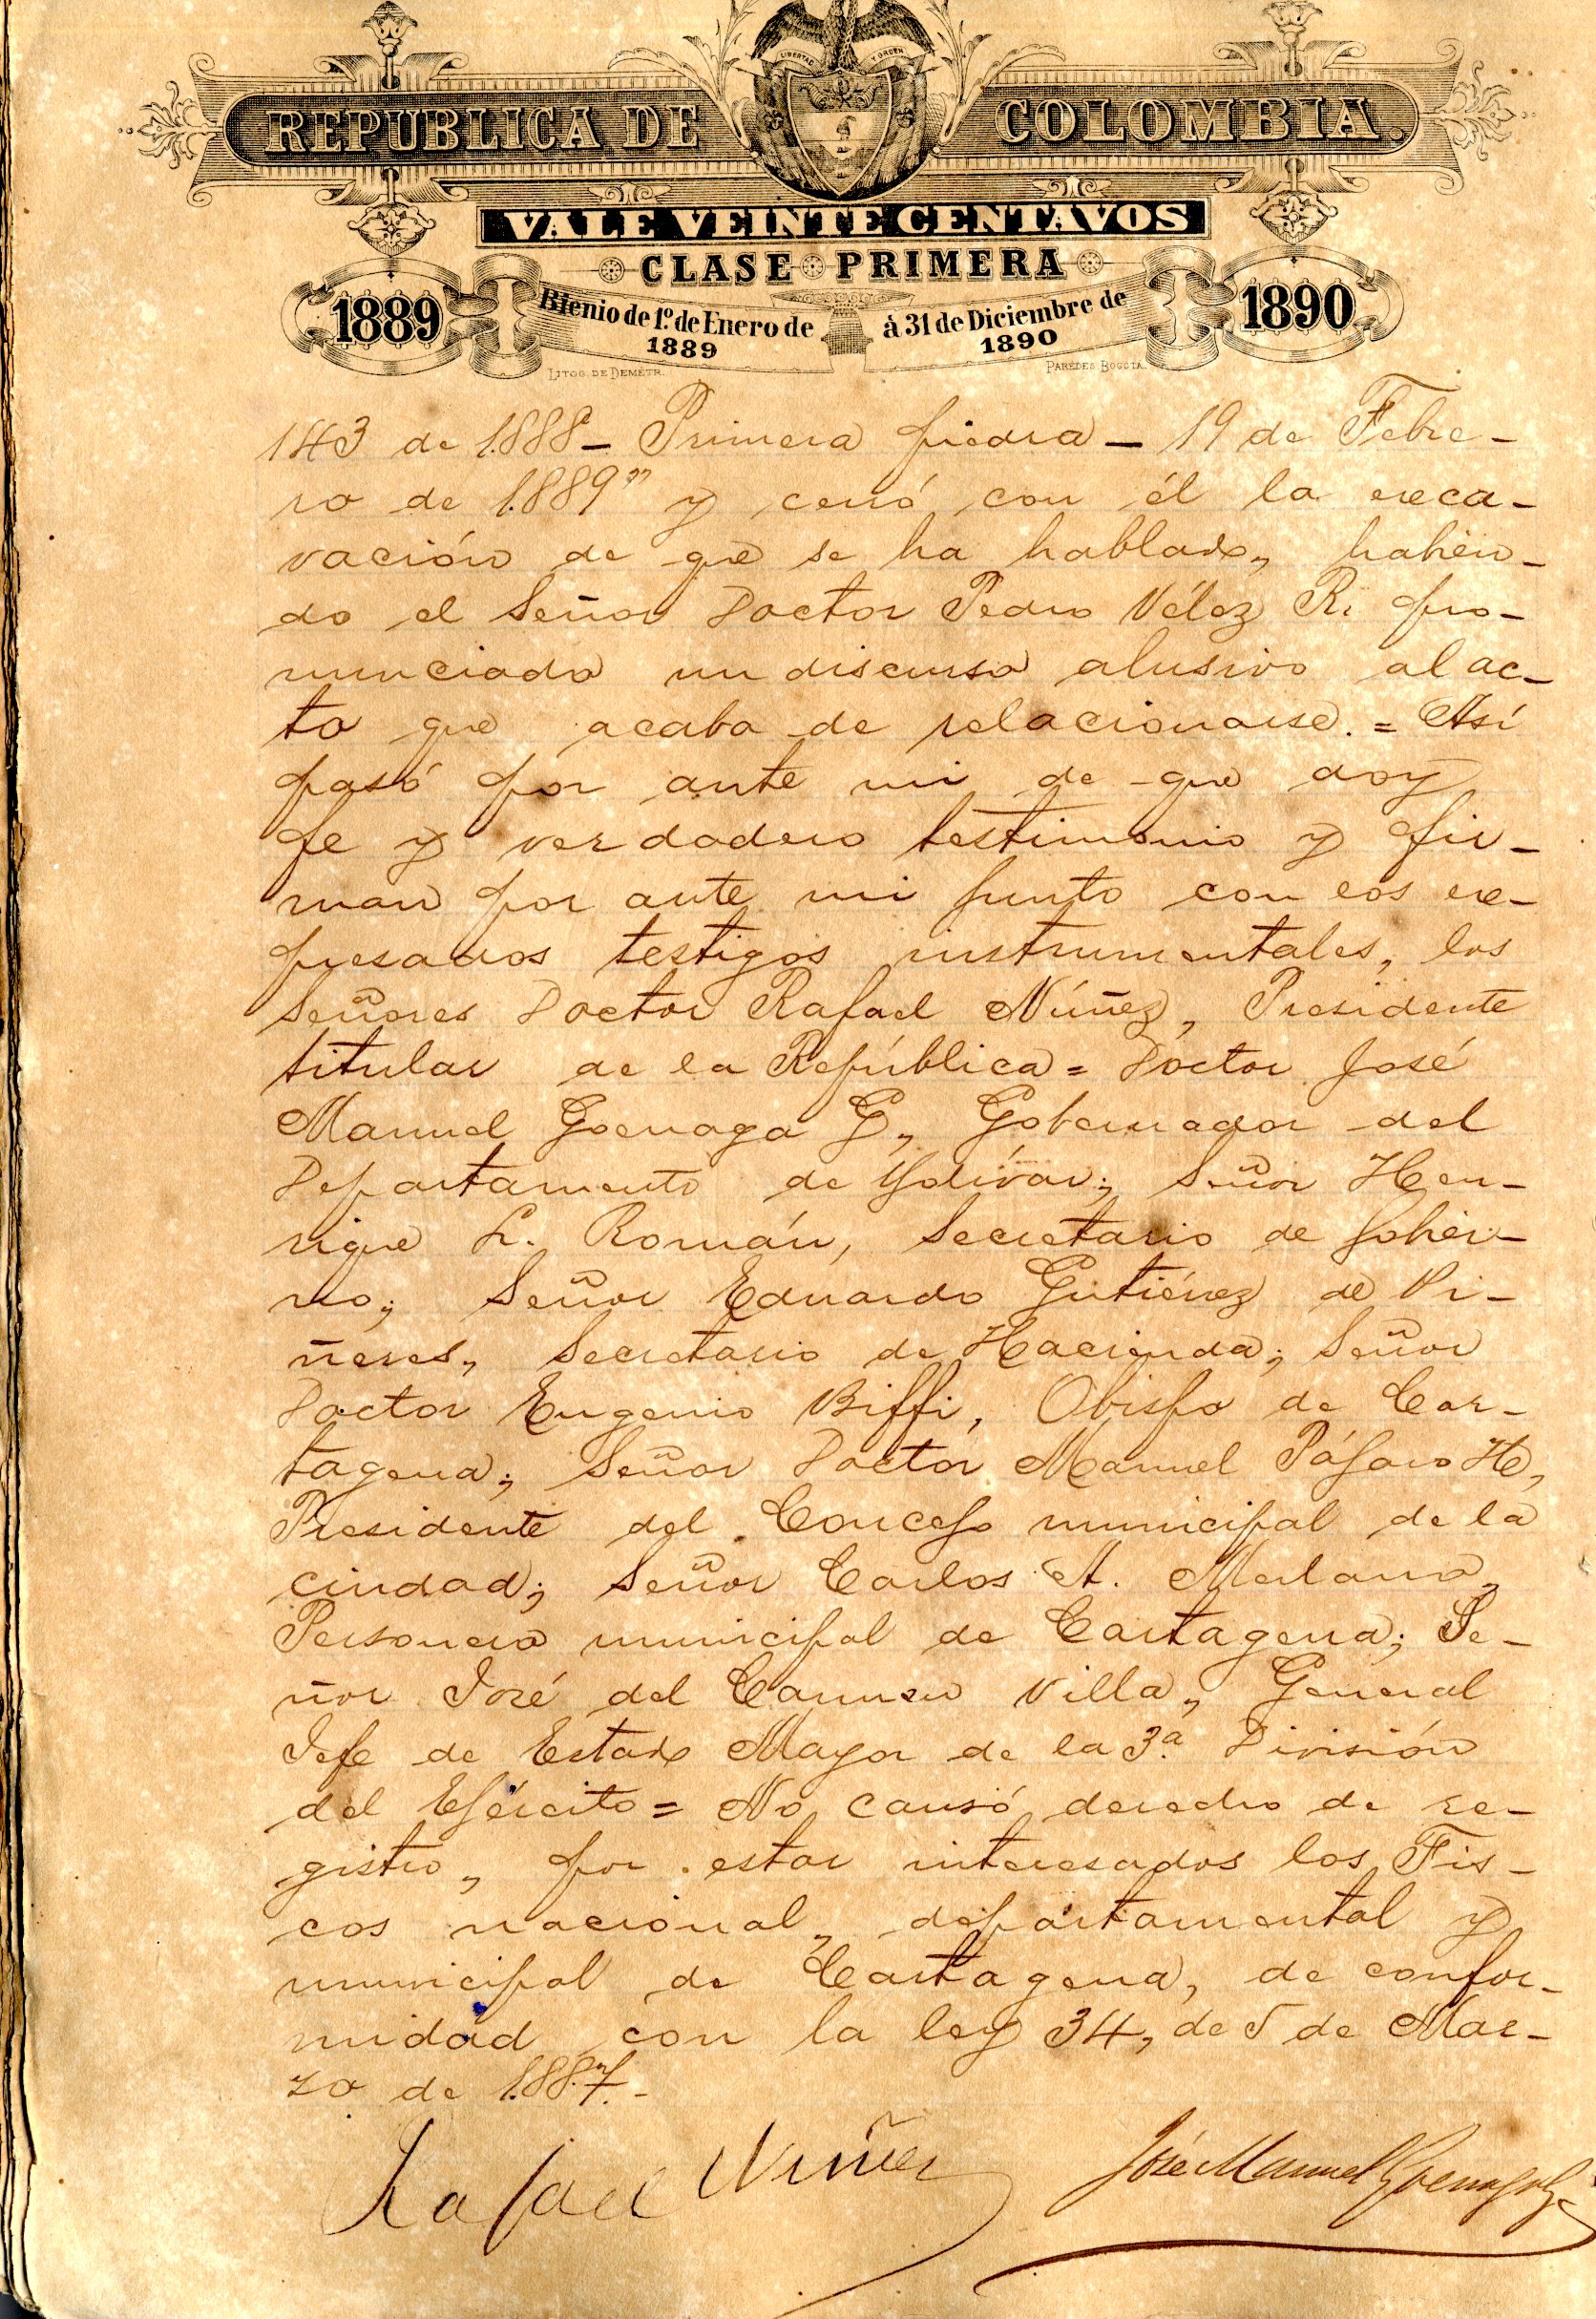 LIBERTAD Y ORDEN
REPUBLICA DE COLOMBIA.
VALE VEINTE CENTAVOS
CLASE PRIMERA
1889 Bienio de 1º. de Enero de 1889 à 31 de Diciembre de 1890 1890
LITOG. DE DEMETR. PAREDES BOGOTA.
143 de 1.888 - Primera piedra - 19 de Febre-
ro de 1.889" y cerró con él la exca-
vación de que se ha hablado, habien-
do el Señor Doctor Pedro Vélez R. pro-
nunciado un discurso alusivo al ac-
to que acaba de relacionarse. = Así
pasó por ante mi de que doy
fe y verdadero testimonio y fir-
man por ante mi junto con los ex-
presados testigos instrumentales, los
Señores Doctor Rafael Núñez, Presidente
titular de la República = Doctor José
Manuel Goenaga G, Gobernador del
Departamento de Bolívar; Señor Hen-
rique L. Román, Secretario de Gobier-
no; Señor Eduardo Gutiérrez de Pi-
ñeres, Secretario de Hacienda; Señor
Doctor Eugenio Biffi, Obispo de Car-
tagena; Señor Doctor Manuel Pájaro H,
Presidente del Concejo municipal de la
ciudad; Señor Carlos A. Merlano,
Personero municipal de Cartagena; Se-
ñor José del Carmen Villa, General
Jefe de Estado Mayor de la 3ª. División
del Ejército = No causó derecho de re-
gistro, por estar interesados los Fis-
cos nacional, departamental y
municipal de Cartagena, de confor-
midad con la ley 34, de 5 de Mar-
zo de 1.887.-
Rafael Núñez José Manuel Goenaga G